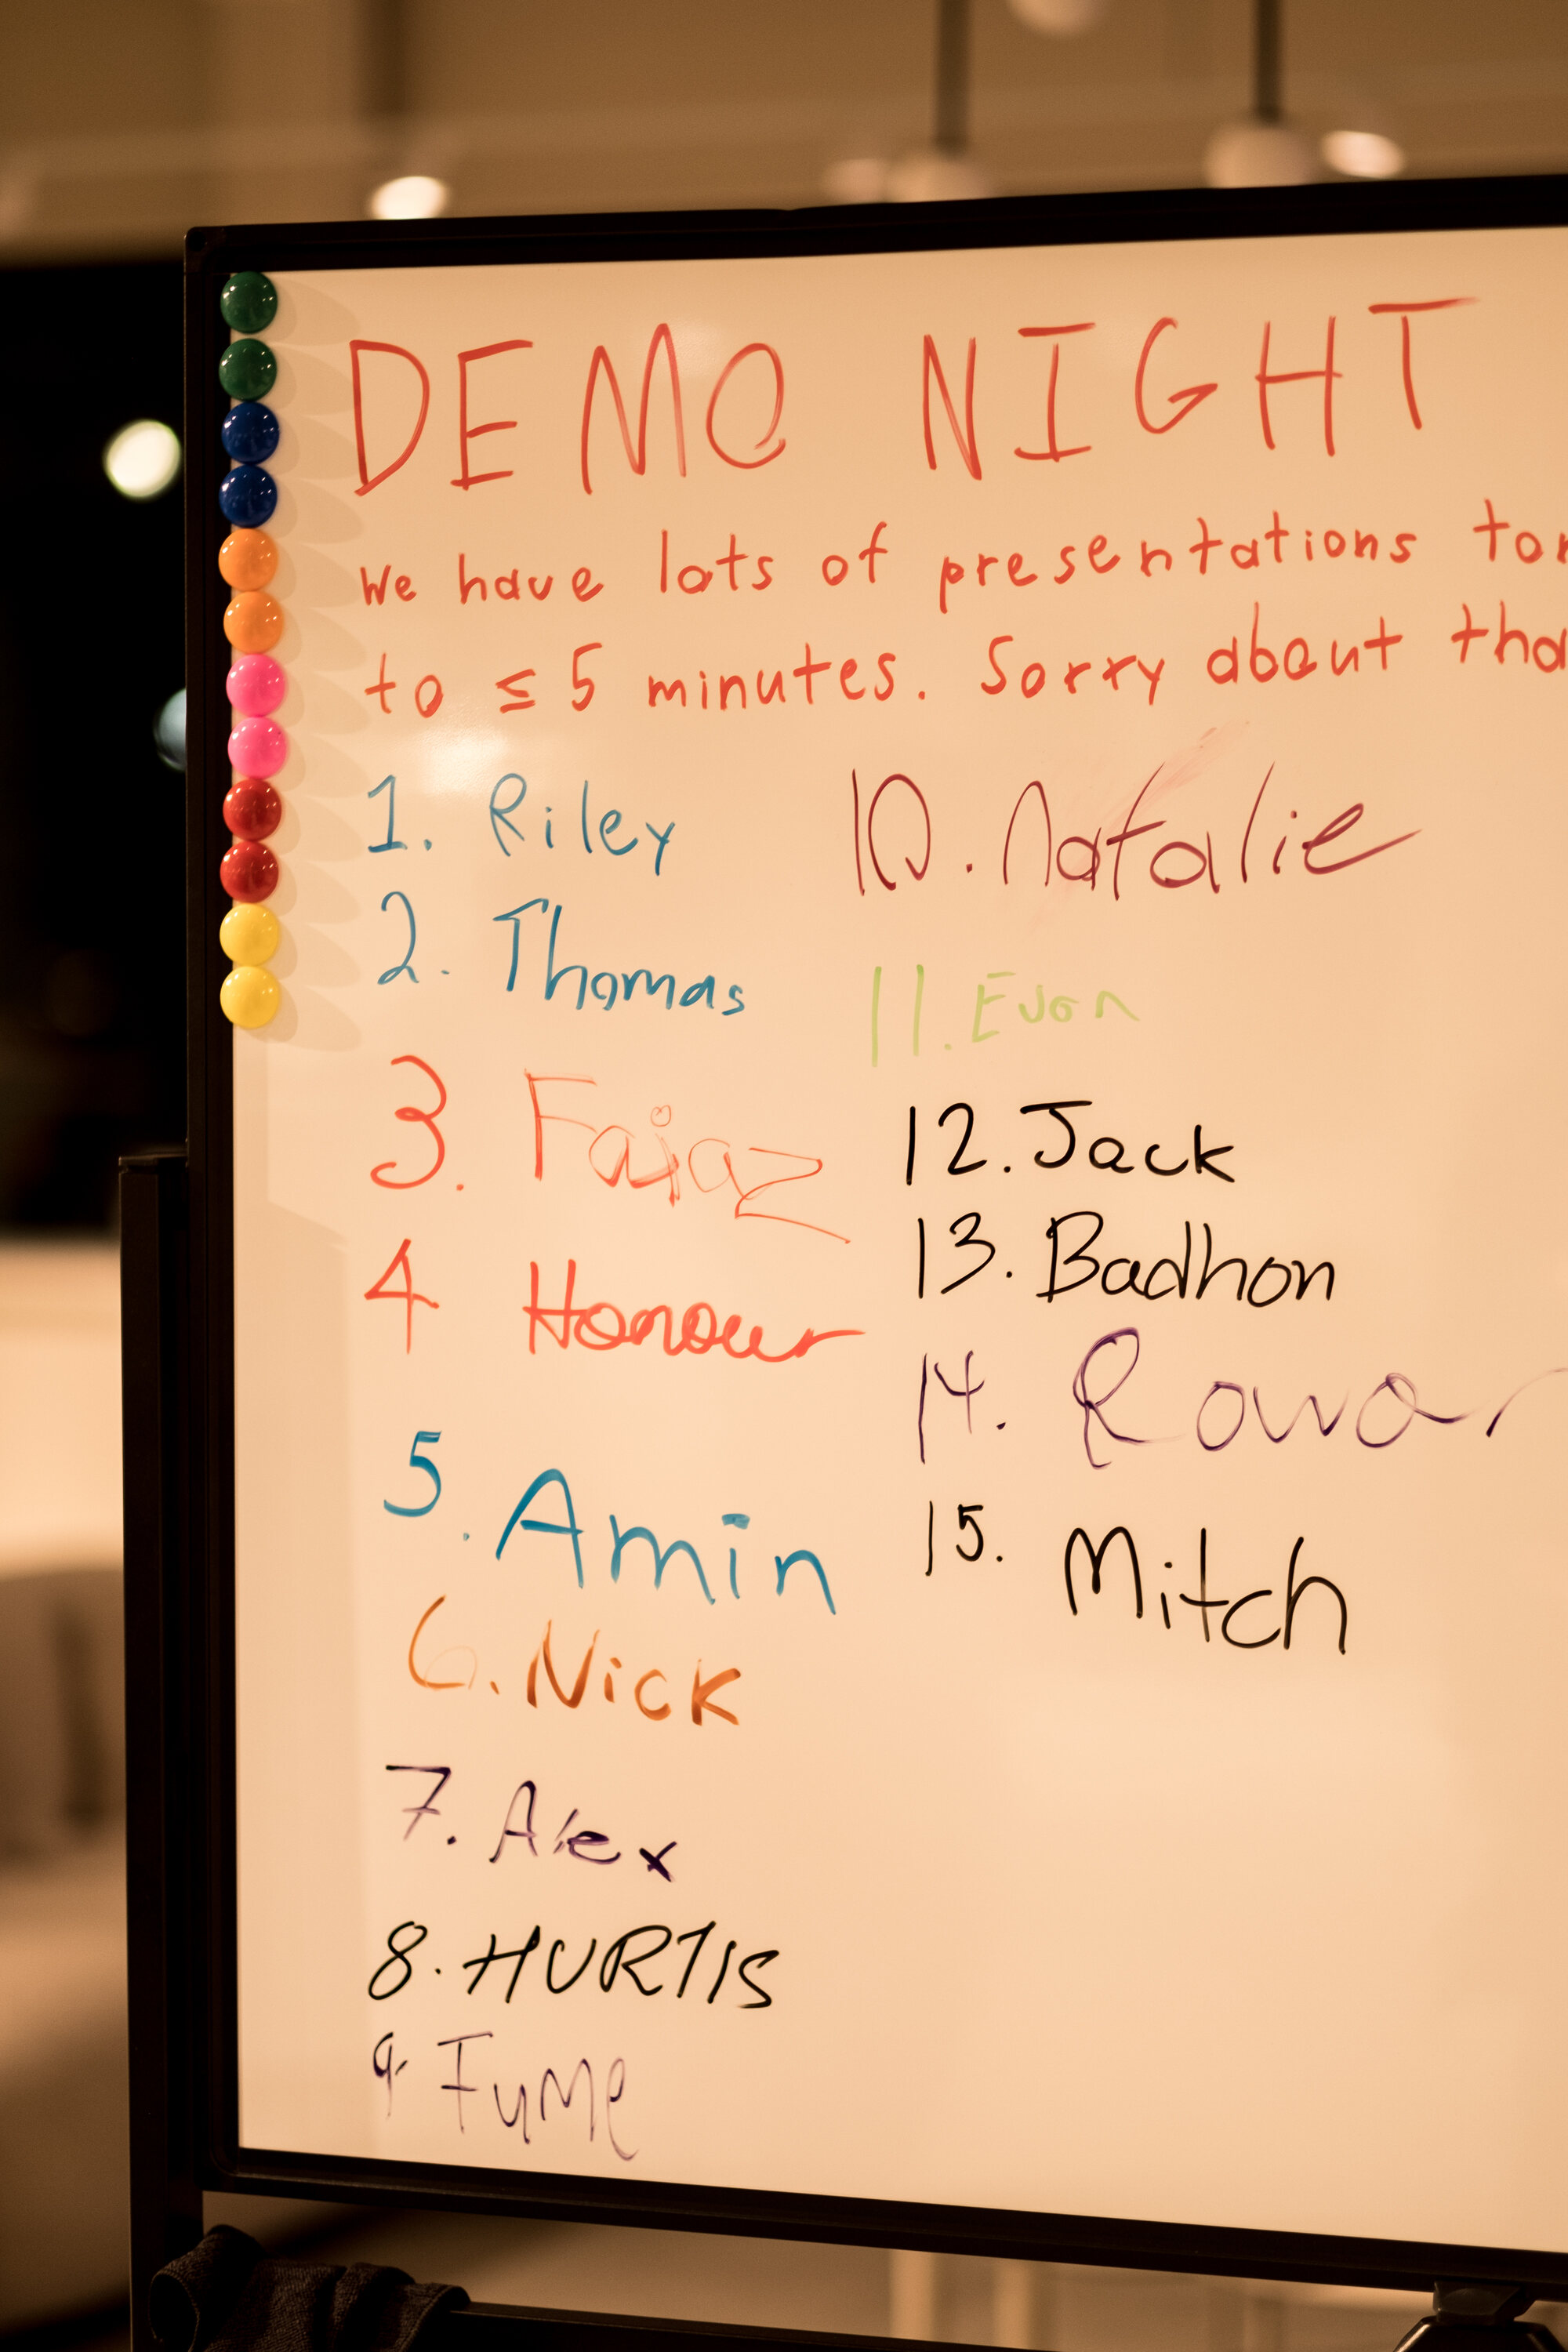 DEMO NIGHT
We have lots of presentations
to ≤ 5 minutes. Sorry about
1. Riley
2. Thomas
3. Faiaz
4 Honour
5. Amin
6. Nick
7. Alex
8. HURTIS
9. Fume
10. Natalie
11. Evan
12. Jack
13. Badhon
14.
15. Mitch